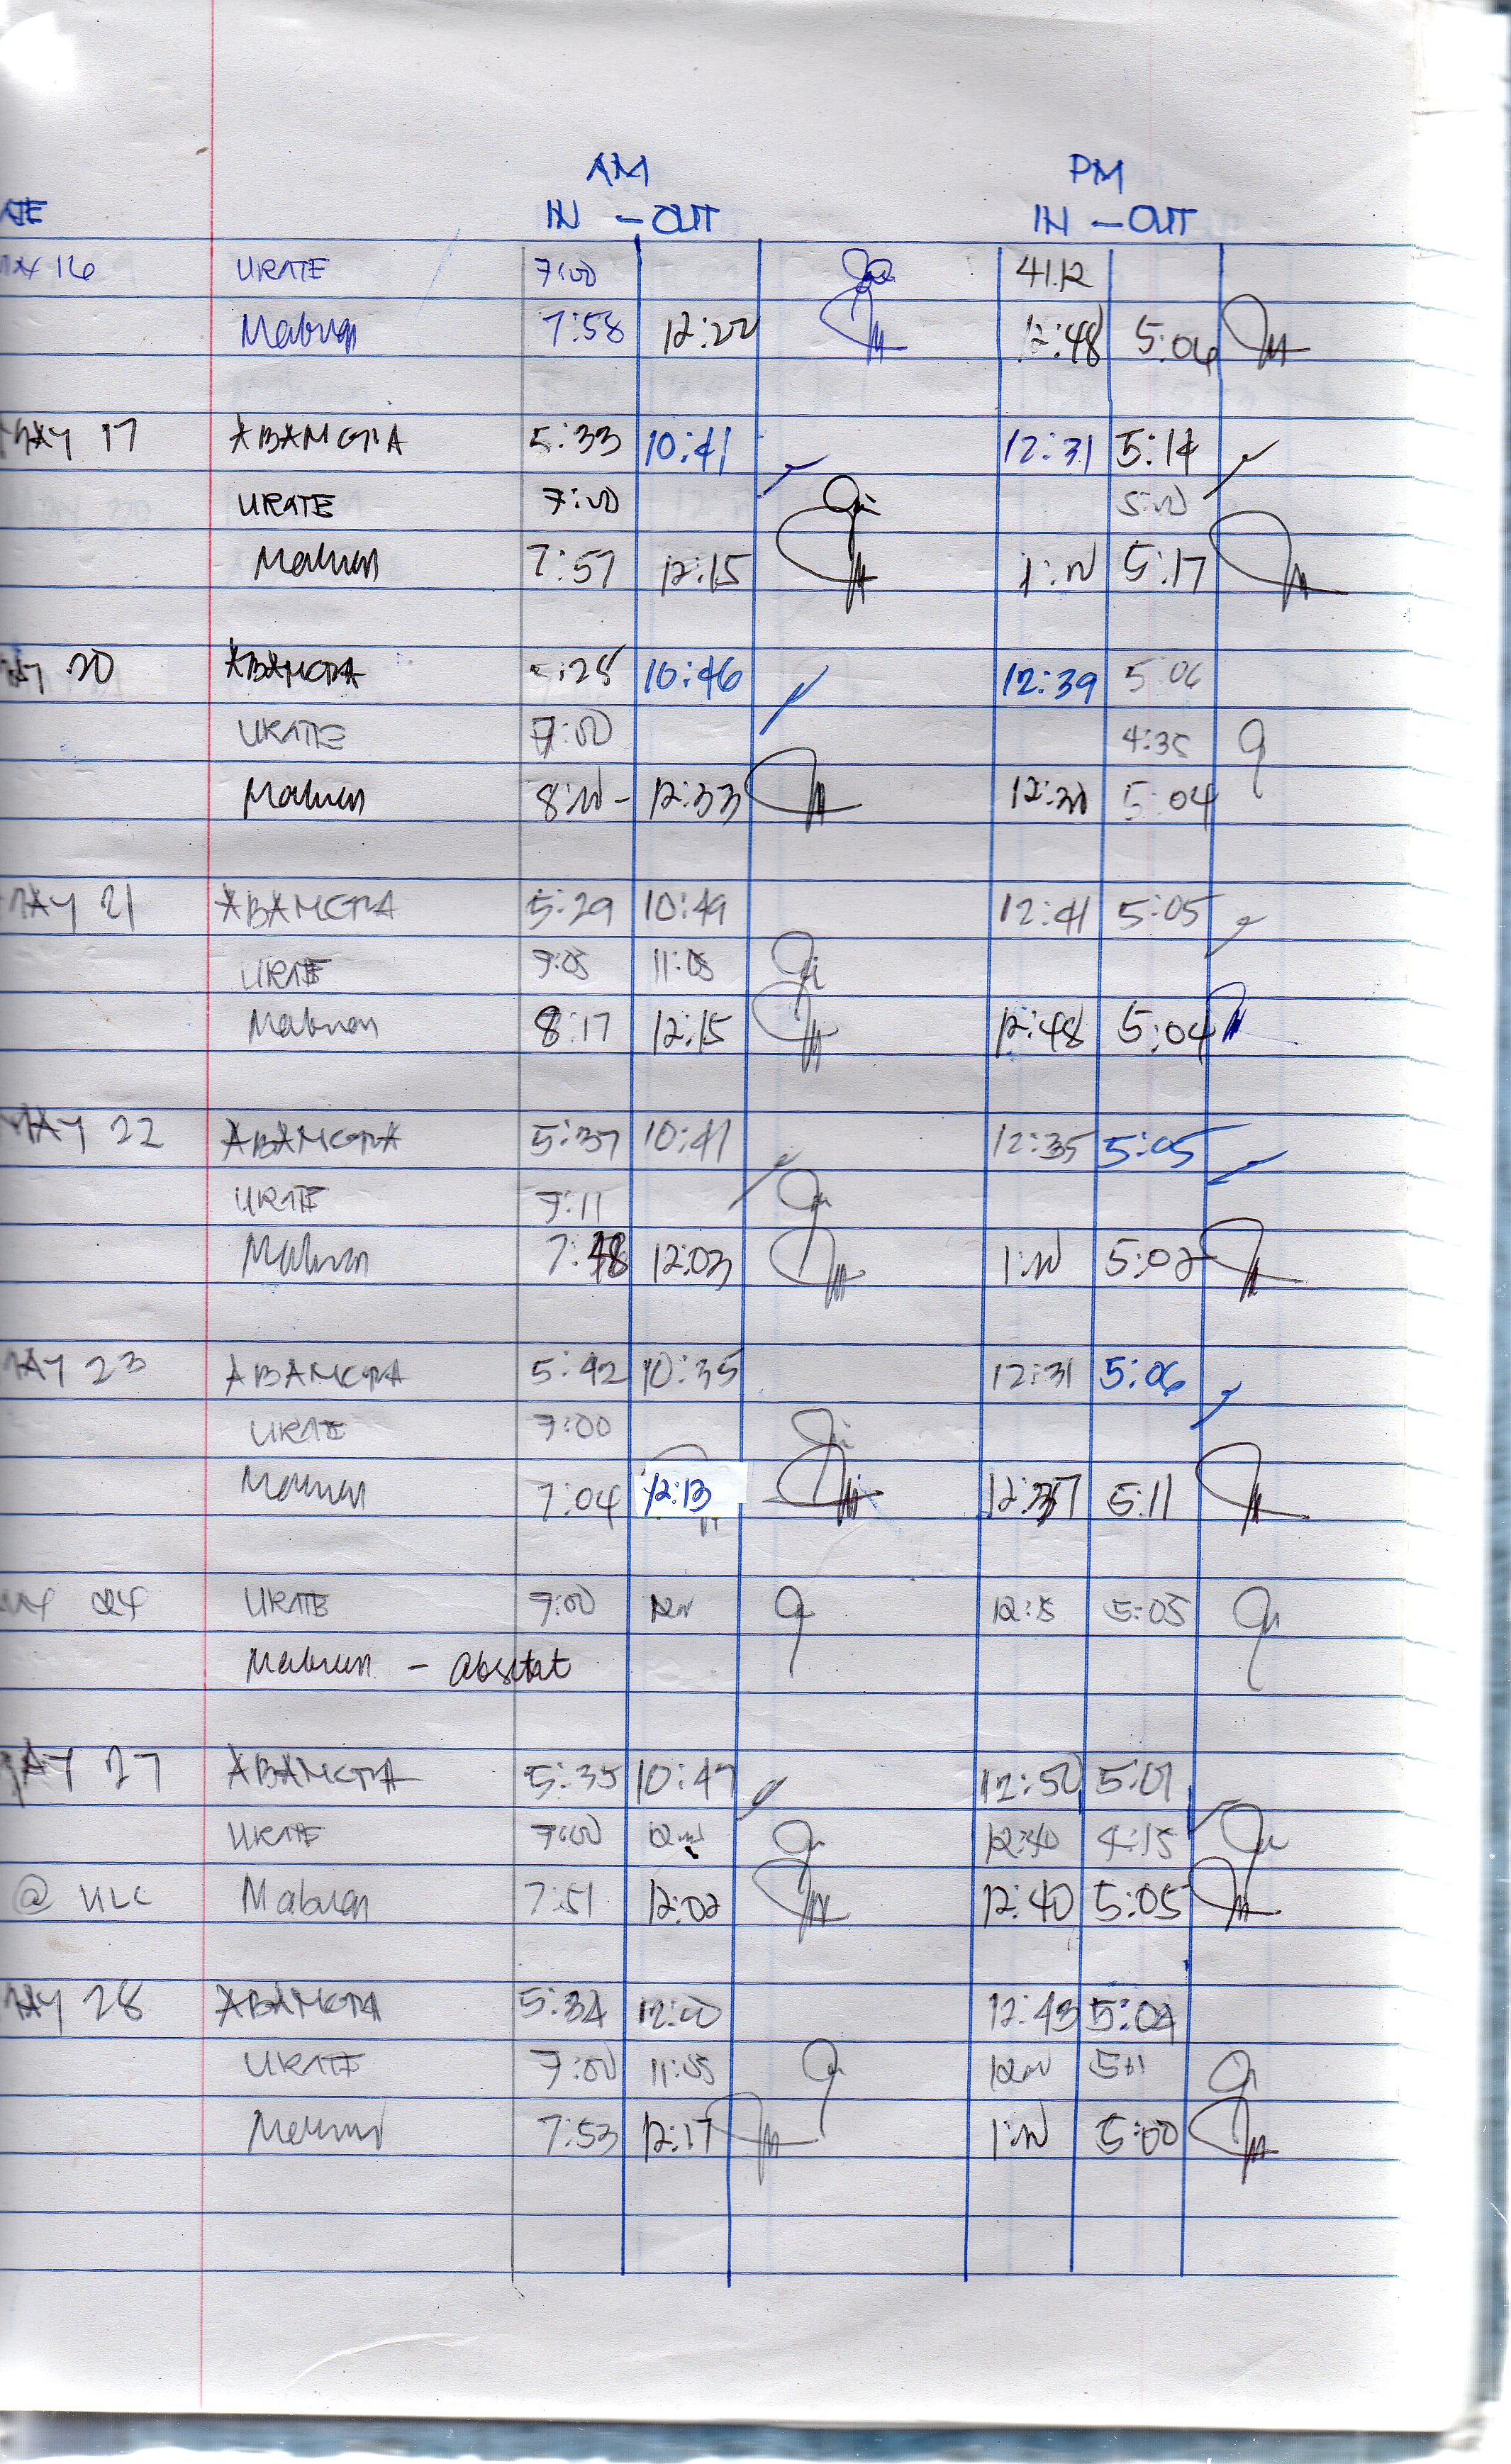 AM PM
IN - OUT IN - OUT
16 URATE 7:00
Mabuan 7:58 12:22 12:48 5:04
MAY 17 ABAMGTA 5:33 10:41 12:31 5:14
URATE 7:00 5:00
Mabuan 7:57 12:15 1:00 5:17
20 ABAMGTA 10:46 12:39 5:06
URATE 7:00 4:35
Mabuan 8:00 - 12:33 5:04
MAY 21 ABAMGTA 5:29 10:49 12:41 5:05
URATE 7:05 11:05
Mabuan 8:17 12:15 12:48 5:04
MAY 22 ABAMGTA 5:37 10:41 12:35 5:05
URATE 7:11
Mabuan 7:48 12:03 1:00 5:02
MAY 23 ABAMGTA 5:42 10:35 12:31 5:06
URATE 7:00
Mabuan 7:04 12:13 12:37 5:11
24 URATE 7:00 5:05
Mabuan - absent
MAY 27 ABAMGTA 5:35 10:47 12:50 5:01
URATE 7:00 12:40 4:15
@ Mabuan 7:51 12:02 12:40 5:05
MAY 28 ABAMGTA 5:34 12:00 12:43 5:04
URATE 7:00 11:55
Mabuan 7:53 12:17 1:00 5:00